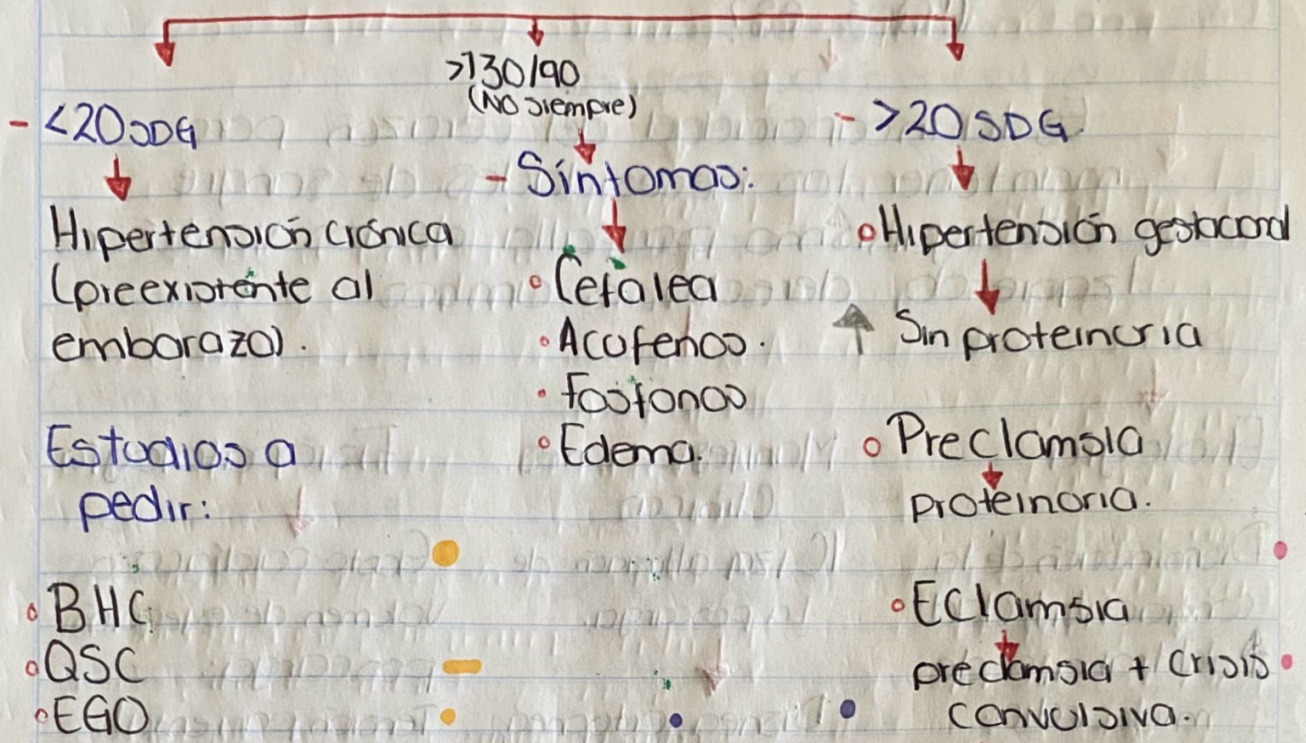 >130/90
(NO siempre)
- <20SDG
Hipertensión crónica
(preexistente al
embarazo).
Estudios a
pedir:
• BHC
• QSC
• EGO
- Síntomas:
• Cefalea
• Acufenos.
• Fosfonos
• Edema.
- >20 SDG
• Hipertensión gestaconal
Sin proteinuria
• Preclamsia
proteinuria.
• Eclamsia
preclamsia + Crisis
convulsiva.